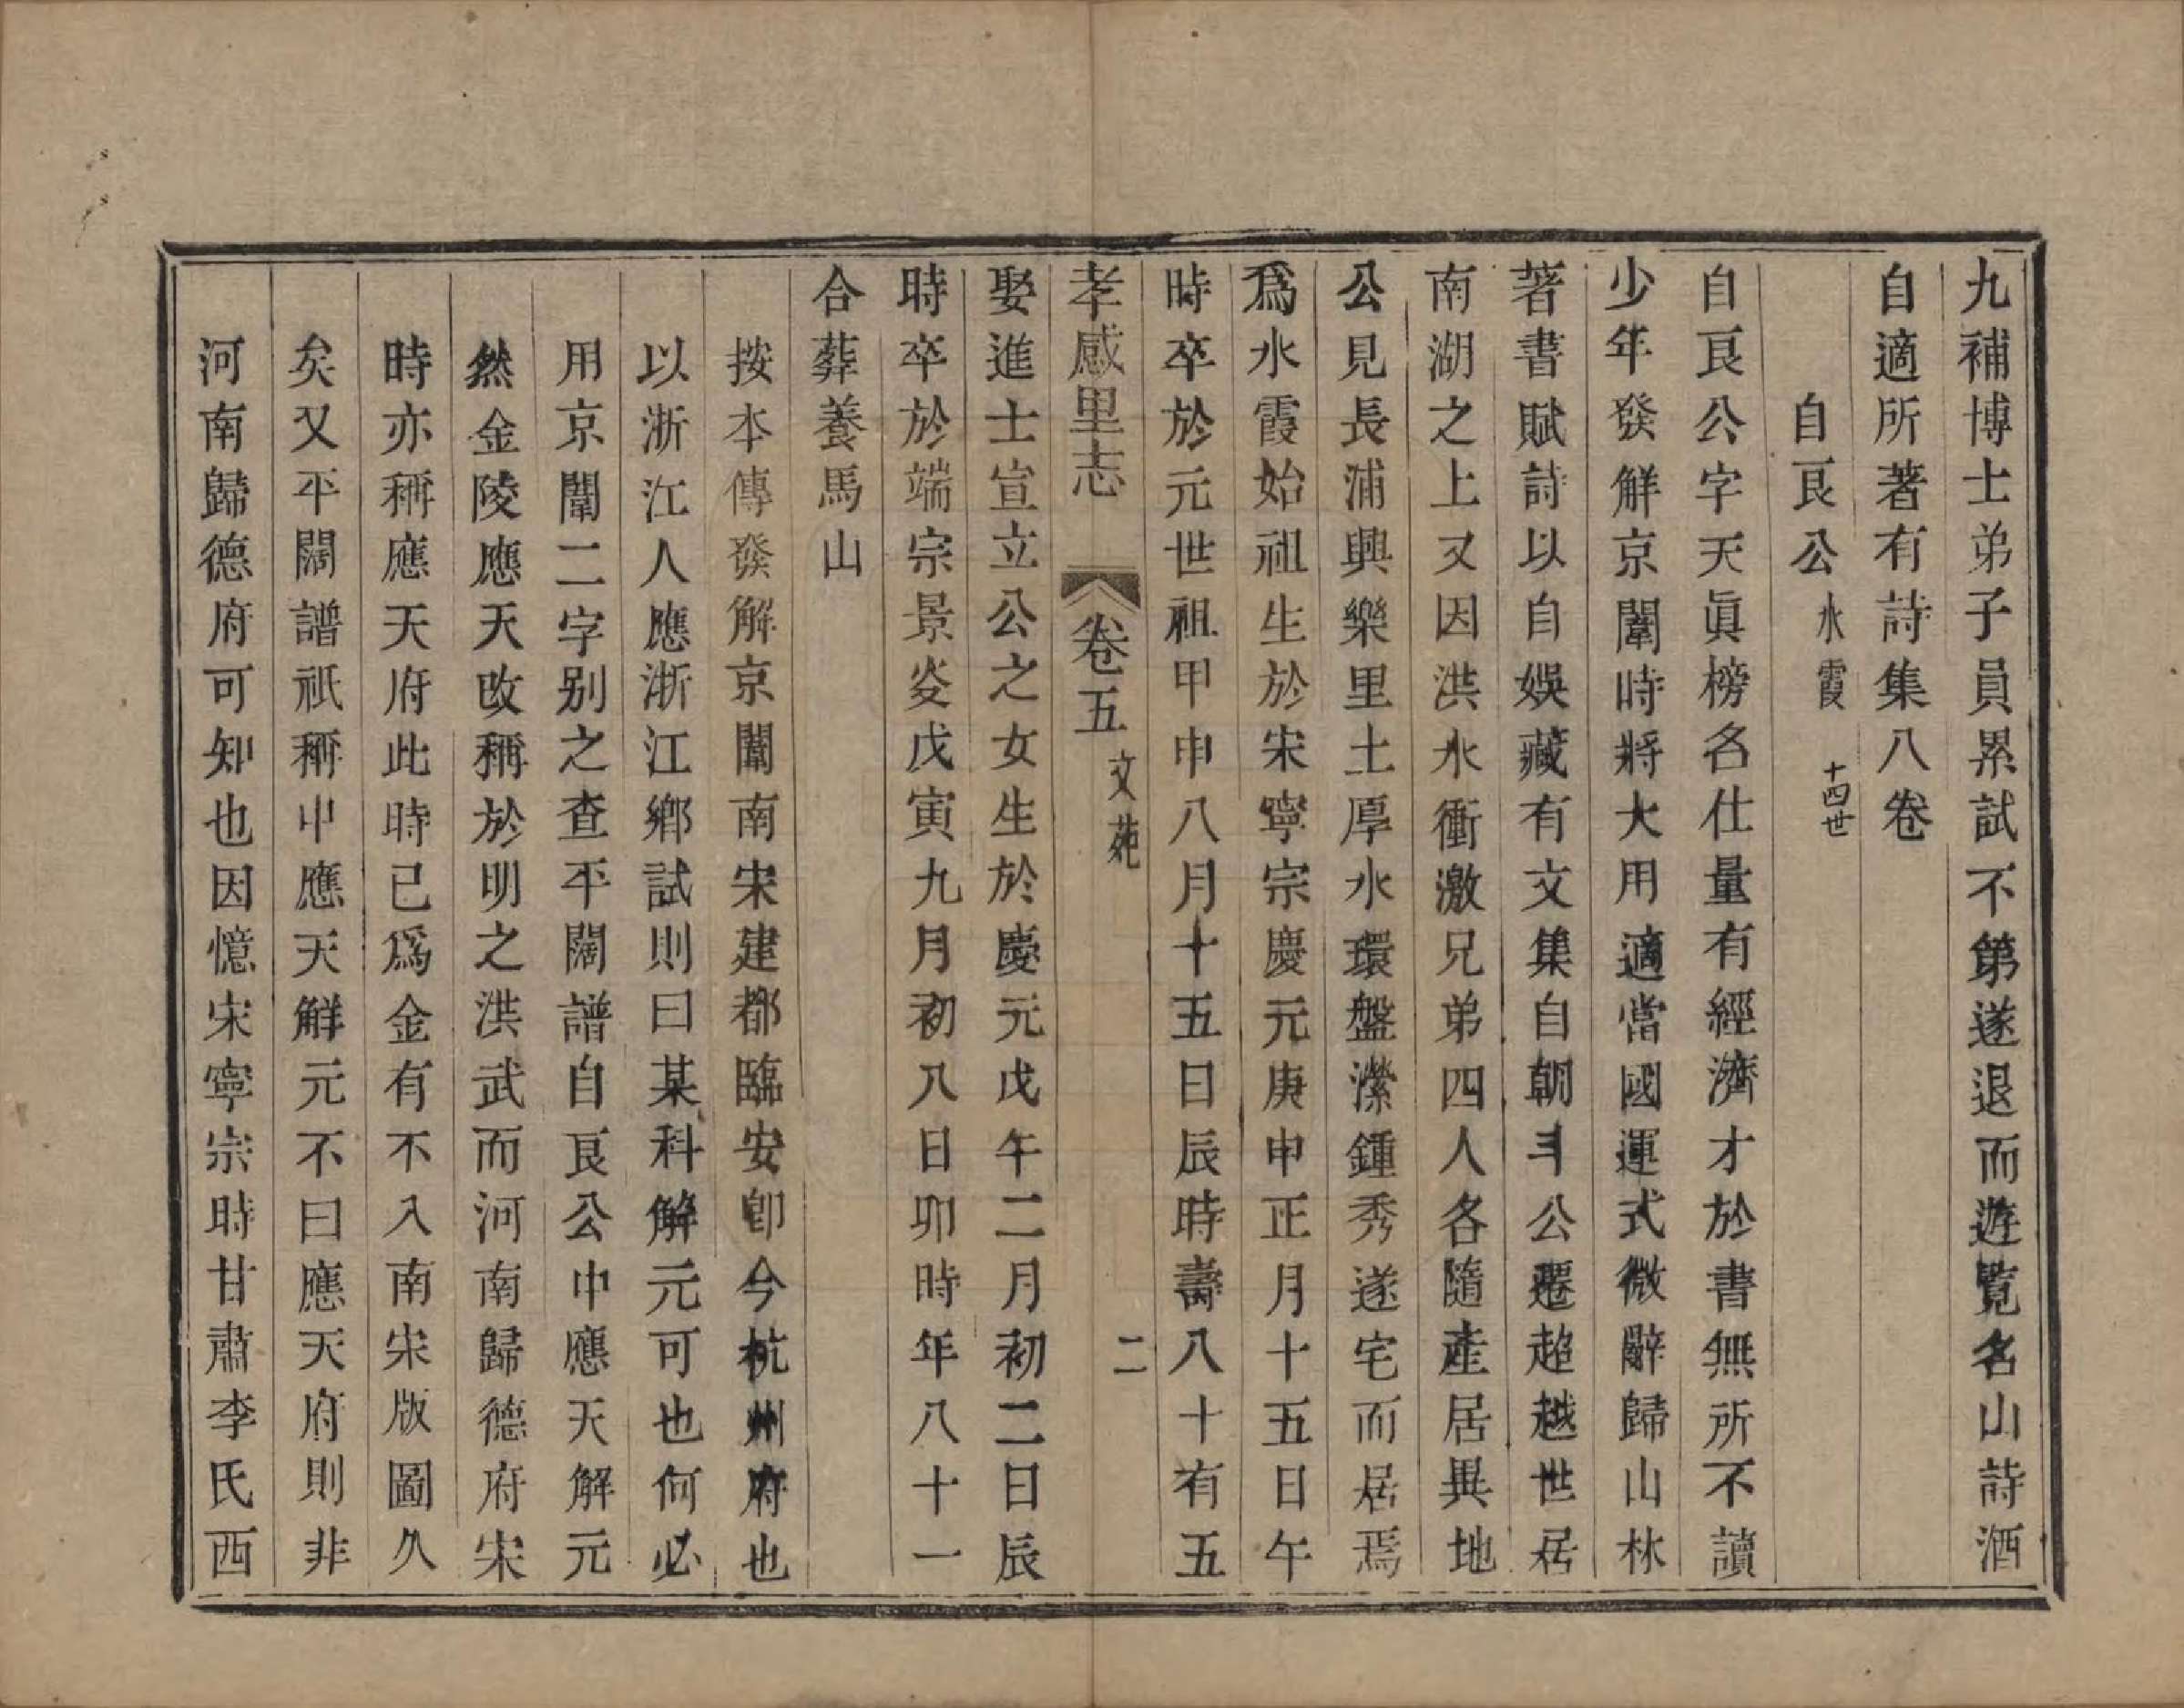 九補博士弟子員累試不第遂退而遊覽名山詩酒
自適所著有詩集八卷
自艮公水霞十四世
自艮公字天眞榜名仕量有經濟才於書無所不讀
少年發解京闈時將大用適當國運式微辭歸山林
著書賦詩以自娛藏有文集自朝斗公遷超越世居
南湖之上又因洪水衝激兄弟四人各隨產居異地
公見長浦興樂里土厚水環盤瀠鍾秀遂宅而居焉
爲水霞始祖生於宋寧宗慶元庚申正月十五日午
時卒於元世祖甲申八月十五日辰時壽八十有五
孝感里志 卷五 文苑 二
娶進士宣立公之女生於慶元戊午二月初二日辰
時卒於端宗景炎戊寅九月初八日卯時年八十一
合葬養馬山
按本傳發解京闈南宋建都臨安卽今杭州府也
以浙江人應浙江鄉試則曰某科解元可也何必
用京闈二字别之查平闊譜自艮公中應天解元
然金陵應天改稱於明之洪武而河南歸德府宋
時亦稱應天府此時已爲金有不入南宋版圖久
矣又平闊譜祇稱中應天解元不曰應天府則非
河南歸德府可知也因憶宋寧宗時甘肅李氏西